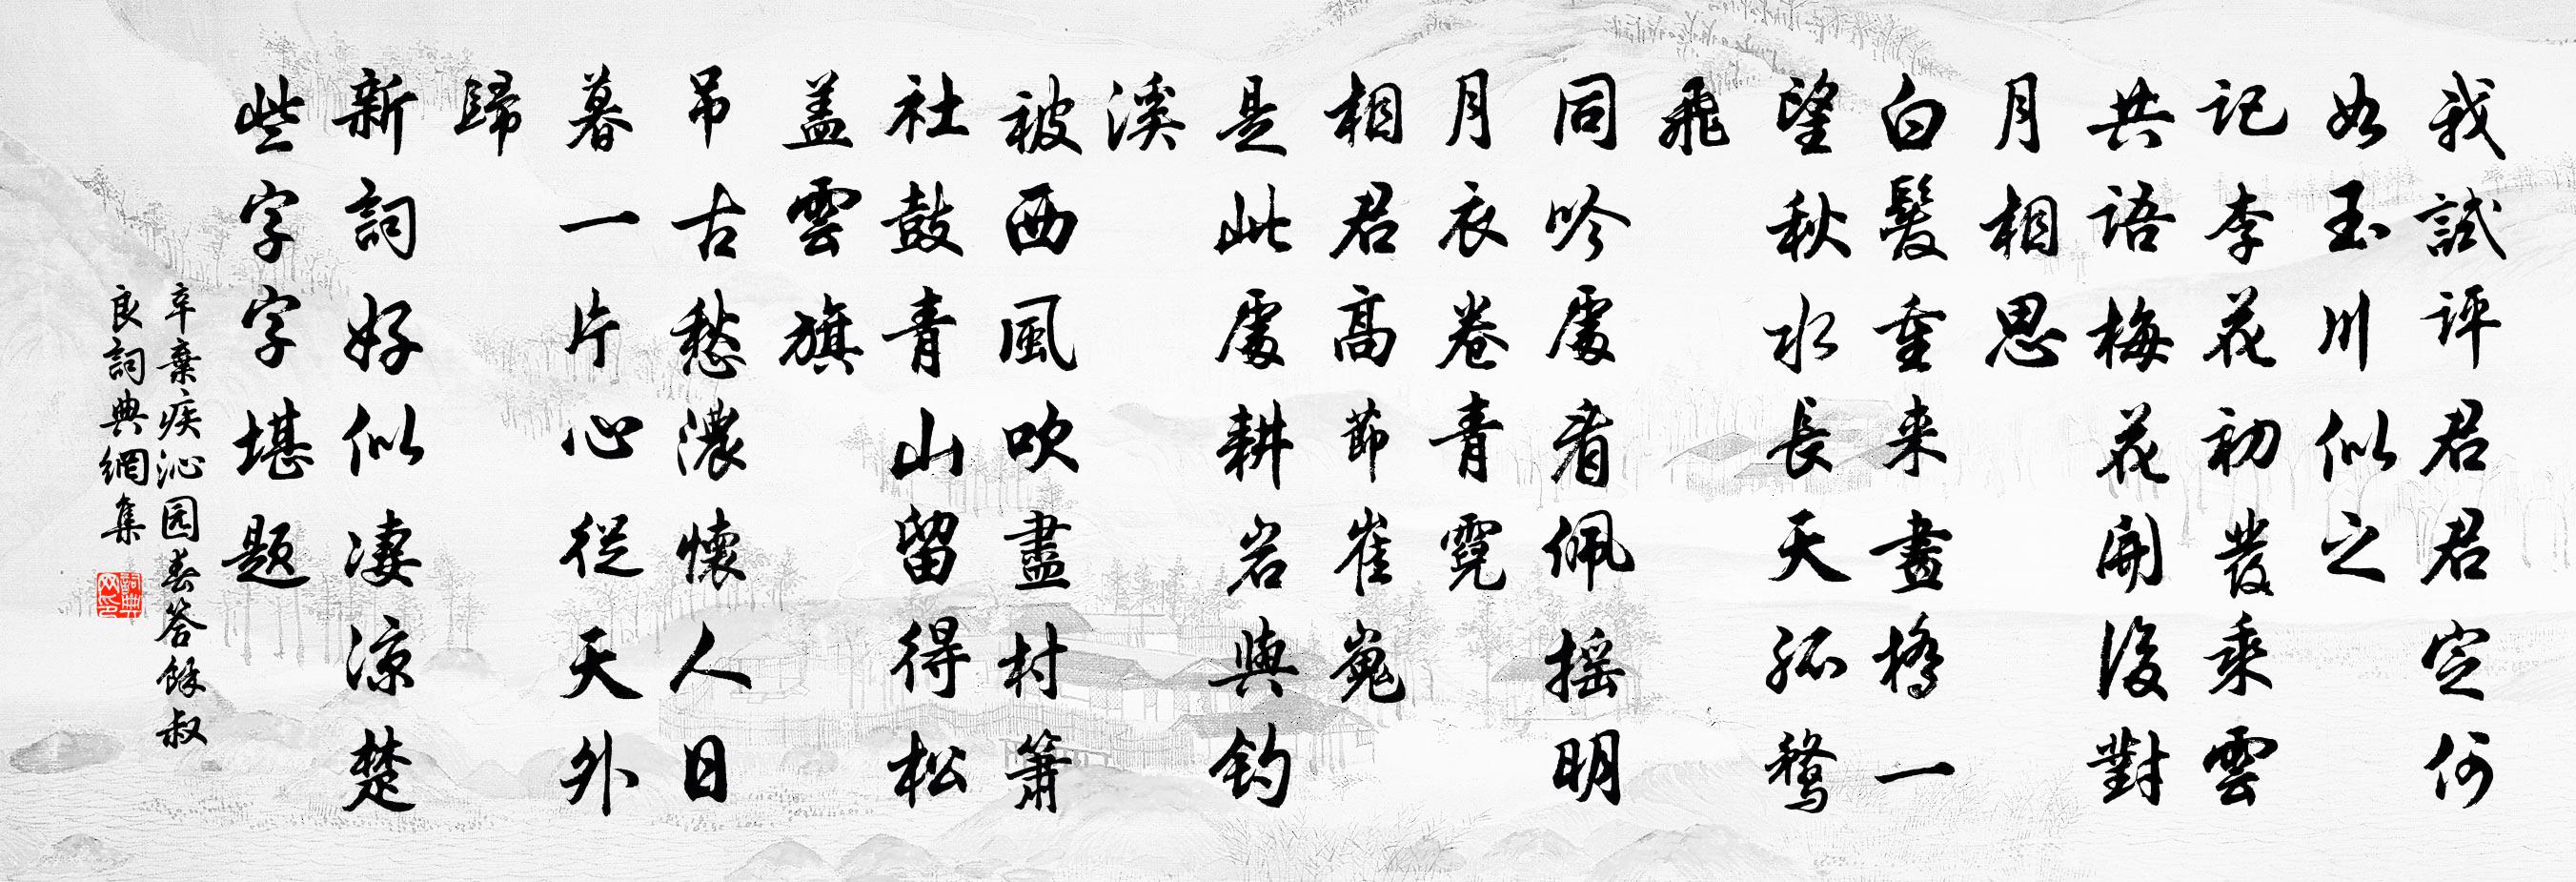 我試評君君定何
如玉川似之
記李花初發乘雲
共語梅花開後對
月相思
白髮重来畫橋一
望秋水長天孤鶩
飛
同吟處看佩摇明
月衣卷青霓
相君高節崔嵬
是此處耕岩與釣
溪
被西風吹盡村簫
社鼓青山留得松
盖雲旗
吊古愁濃懷人日
暮一片心從天外
歸
新詞好似凄凉楚
些字字堪題
辛棄疾沁园春答餘叔
良詞典網集
詞典网印